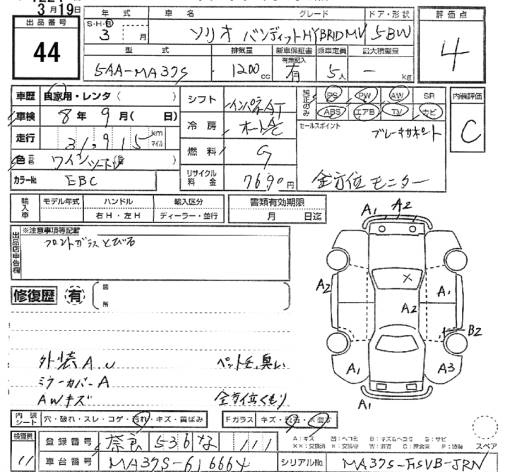 3月19日
出品番号 年式 車名 グレード ドア・形状 評価点
44
S・H・R 3 月 ソリオ バンディットHYBRID MV 5BW 4
型式 排気量 新車保証書 乗車定員 最大積載量
5AA-MA37S 1200 cc 有 5人 - kg
車歴 自家用・レンタ ( )
シフト インパネAT
PS PW AW SR
ABS エアB TV ナビ
内装評価
C
車検 8年 9月 ( 日)
冷房 オートAC
セールスポイント
ブレーキサポート
走行 31,915 km マイル
燃料 G
色 ワイン
リサイクル料金 7690円
全方位モニター
カラーNo. EBC
輸入車 モデル年式 ハンドル 輸入区分 書類有効期限
右H・左H ディーラー・並行 月 日迄
※注意事項等記載
出品店申告欄
フロントガラスとびる
A1 A2 A1
A2 A1 A2 B2
A1 A3
A1
修復歴 有
箇所
外装A.U ペット毛、臭い
ミラーカバーA
AWキズ 全方位くもり
内装シート 穴・破れ・スレ・コゲ・汚れ・キズ・歯ばみ Fガラス キズ・
登録番号 奈良 536 な 111
スペア
検査員 11
車台番号 MA37S-616664 シリアルNo. MA37S-FJSVB-JRN